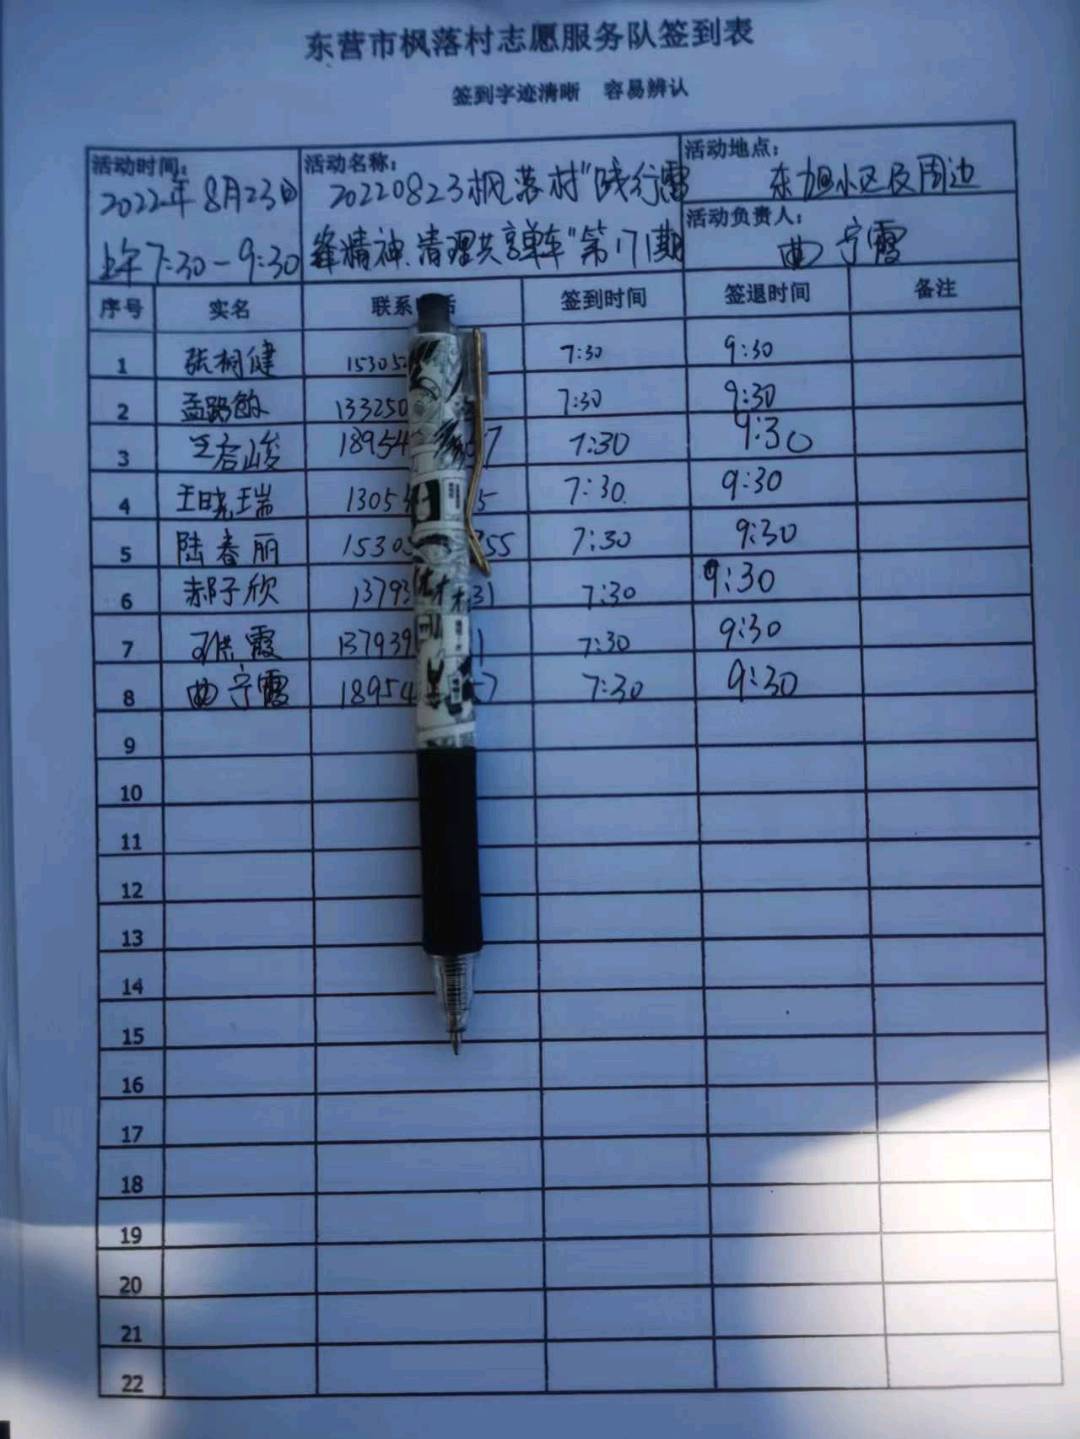 东营市枫落村志愿服务队签到表
签到字迹清晰 容易辨认
活动时间:
2022年8月23日
上午7:30-9:30
活动名称:
20220823枫落村"践行雷
锋精神.清理共享单车"第171期
活动地点:
东旭小区及周边
活动负责人:
曲宁霞
序号 实名 联系 话 签到时间 签退时间 备注
1 张桐健 15305 7:30 9:30
2 孟 133250 7:30 9:30
3 王 峻 18954 7 7:30 9:30
4 王晓瑞 1305 5 7:30 9:30
5 陆春丽 1530 55 7:30 9:30
6 郝子欣 1379 31 7:30 9:30
7 霞 137939 1 7:30 9:30
8 曲宁霞 18954 7 7:30 9:30
9
10
11
12
13
14
15
16
17
18
19
20
21
22